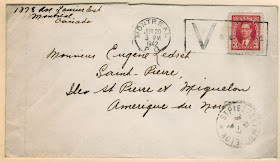 1878 Ave Laurier East
Montreal
Canada
MONTREAL
JUN 20
4 PM
1942
P.Q.
V
Monsieur Eugène
Saint-Pierre,
Iles St Pierre et Miquelon
Amerique du Nord
ST PIERRE